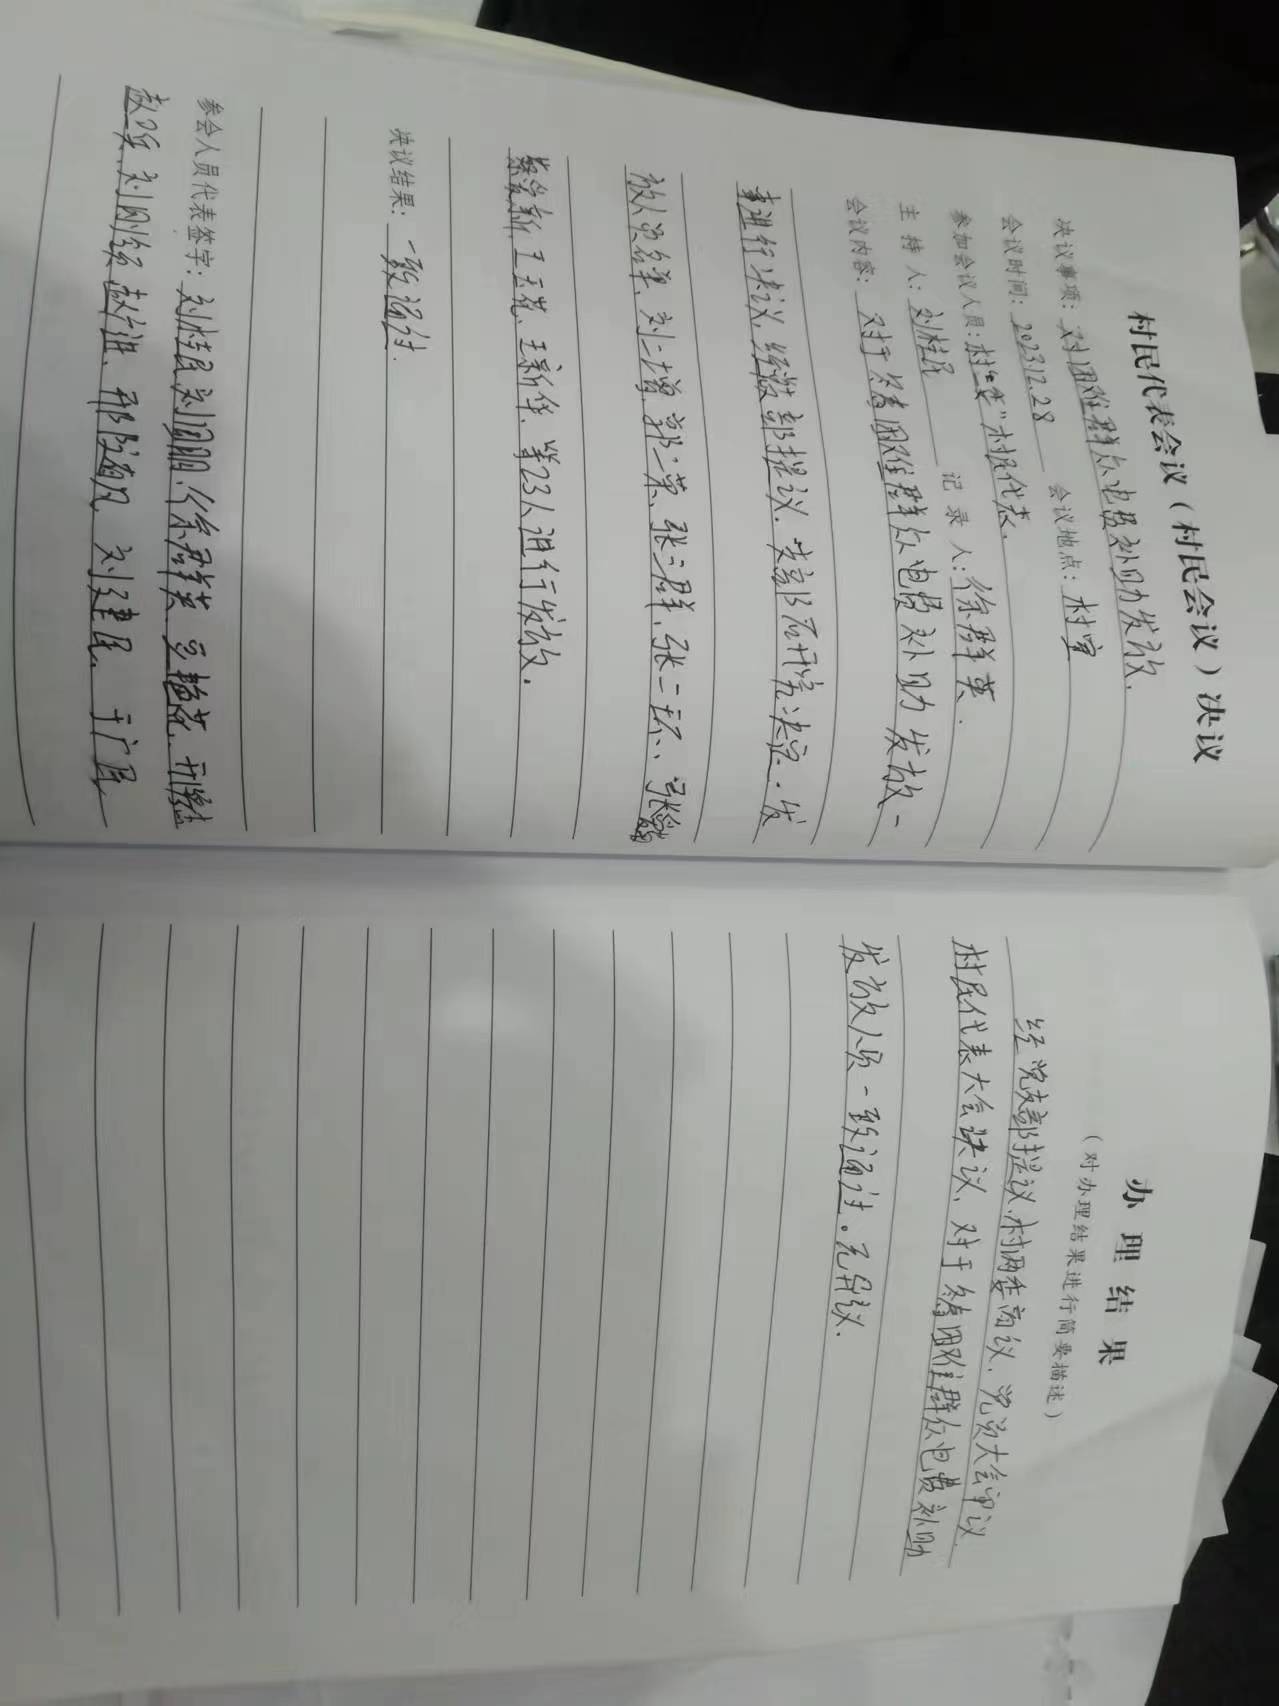 村民代表会议（村民会议）决议
决议事项：对困难群众电费补助发放.
会议时间：2023.12.28 会议地点：村室
参加会议人员：村"两委"村民代表.
主 持 人：刘桂民 记 录 人：徐群英.
会议内容：对于 困难群众电费补助发放一
事进行决议，经 支部提议，支部 研究决定．发
放人员名单，刘二增 郭二荣、张二群、张二环、
王玉花、王新华、等23人进行发放.
决议结果：一致通过.
参会人员代表签字：刘桂民 徐群英
刘刚 刘建民
办 理 结 果
（对办理结果进行简要描述）
经党支部提议，村两委商议，党员大会审议
村民代表大会决议，对于 困难群众电费补助
发放人员一致通过。无异议.